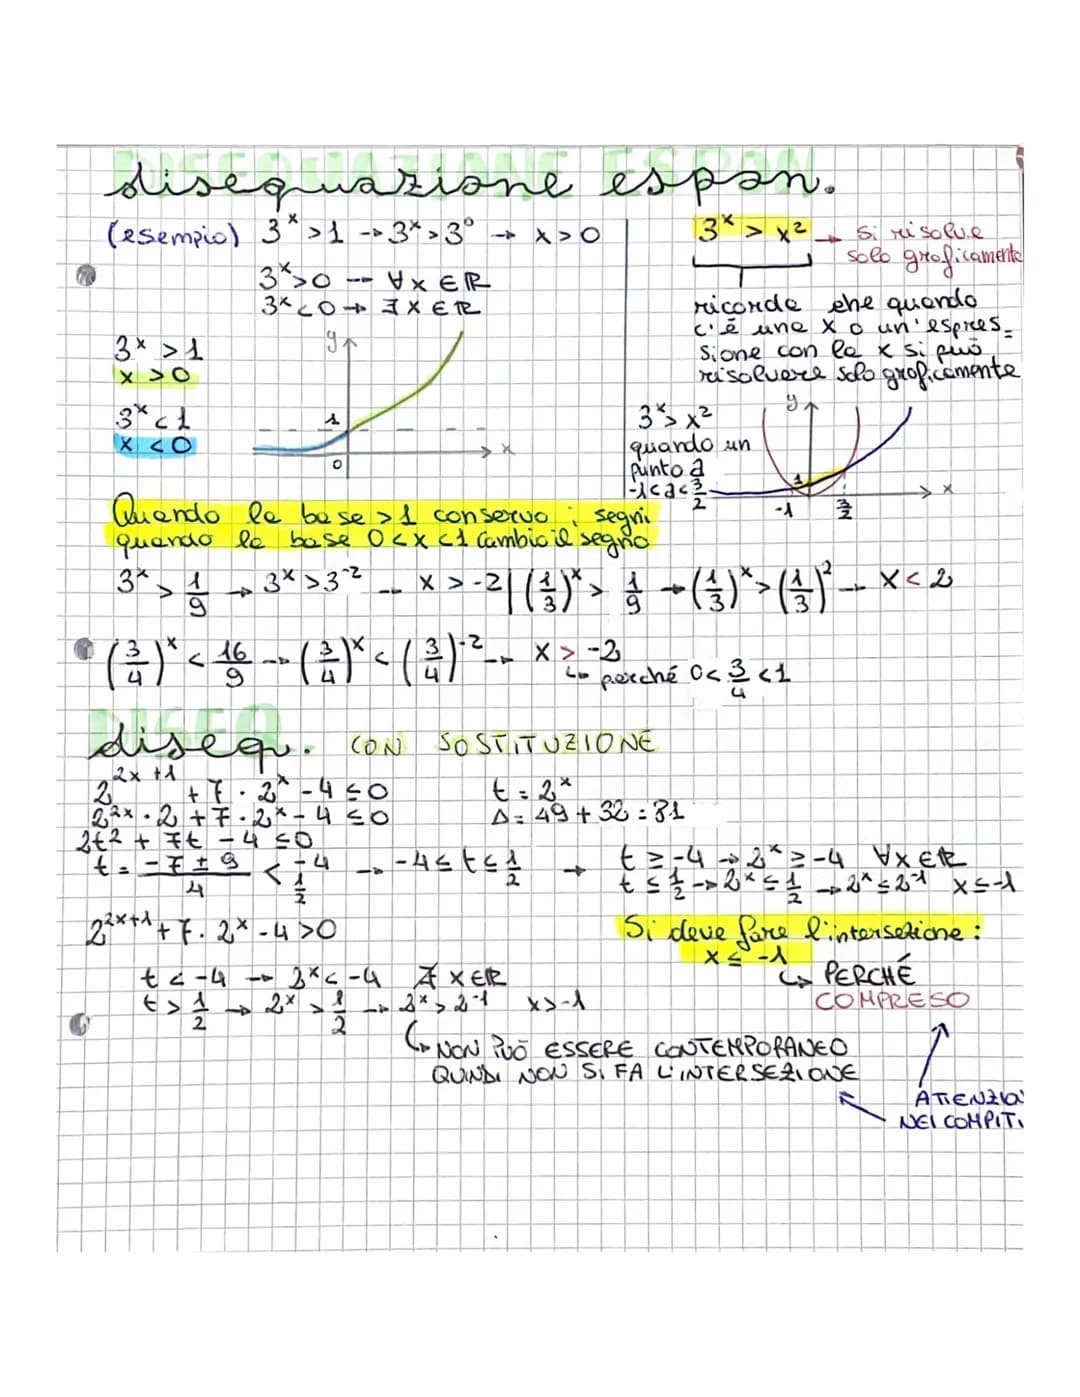 DISEQUAZIONE ESPON
disequazione espon.
(esempio) 3^x > 1 → 3^x > 3^0 → x > 0
3^x > 0 → ∀ x ∈ R
3^x < 0 → ∄ x ∈ R
3^x > 1
x > 0
3^x < 1
x < 0
y
1
0
x
3^x > x² → si risolve
solo graficamente
ricorda che quando
c'è una x o un'espres-
sione con la x si può
risolvere solo graficamente
3^x > x²
quando un
punto a
-1 < a < 3/2
y
1
x
-1
3/2
Quando la base > 1 conservo i segni
quando la base 0 < x < 1 cambio il segno
3^x > 1/9 → 3^x > 3^-2 → x > -2 | (1/3)^x > 1/9 → (1/3)^x > (1/3)^2 → x < 2
(3/4)^x < 16/9 → (3/4)^x < (3/4)^-2 → x > -2
↳ perché 0 < 3/4 < 1
DISEQ
diseq. CON SOSTITUZIONE
2^(2x+1) + 7 · 2^x - 4 ≤ 0 t = 2^x
2^2x · 2 + 7 · 2^x - 4 ≤ 0 Δ = 49 + 32 = 81
2t² + 7t - 4 ≤ 0
t = (-7 ± 9)/4 < -4 1/2 → -4 ≤ t ≤ 1/2 → t ≥ -4 → 2^x ≥ -4 ∀ x ∈ R
t ≤ 1/2 → 2^x ≤ 1/2 → 2^x ≤ 2^-1 x ≤ -1
2^(2x+1) + 7 · 2^x - 4 > 0
Si deve fare l'intersezione:
x ≤ -1
↳ PERCHÉ
COMPRESO
t < -4 → 2^x < -4 ∄ x ∈ R
t > 1/2 → 2^x > 1/2 → 2^x > 2^-1 x > -1
↳ NON PUÒ ESSERE CONTEMPORANEO
QUINDI NON SI FA L'INTERSEZIONE
ATTENZIO
NEI COMPITI